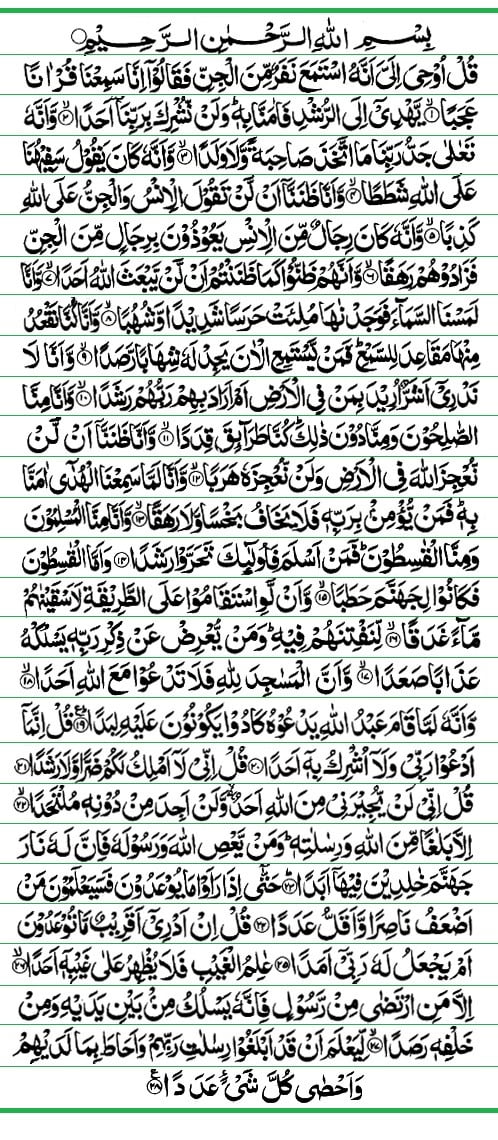 بِسْمِ اللهِ الرَّحْمٰنِ الرَّحِيْمِ ○
قُلْ اُوْحِيَ اِلَيَّ اَنَّهُ اسْتَمَعَ نَفَرٌ مِّنَ الْجِنِّ فَقَالُوْٓا اِنَّا سَمِعْنَا قُرْاٰنًا
عَجَبًا ۙ۱ يَّهْدِيْٓ اِلَى الرُّشْدِ فَاٰمَنَّا بِهٖ ؕ وَلَنْ نُّشْرِكَ بِرَبِّنَآ اَحَدًا ۙ۲ وَّاَنَّهٗ
تَعٰلٰى جَدُّ رَبِّنَا مَا اتَّخَذَ صَاحِبَةً وَّلَا وَلَدًا ۙ۳ وَّاَنَّهٗ كَانَ يَقُوْلُ سَفِيْهُنَا
عَلَى اللهِ شَطَطًا ۙ۴ وَّاَنَّا ظَنَنَّآ اَنْ لَّنْ تَقُوْلَ الْاِنْسُ وَالْجِنُّ عَلَى اللهِ
كَذِبًا ۙ۵ وَّاَنَّهٗ كَانَ رِجَالٌ مِّنَ الْاِنْسِ يَعُوْذُوْنَ بِرِجَالٍ مِّنَ الْجِنِّ
فَزَادُوْهُمْ رَهَقًا ۙ۶ وَّاَنَّهُمْ ظَنُّوْا كَمَا ظَنَنْتُمْ اَنْ لَّنْ يَّبْعَثَ اللهُ اَحَدًا ۙ۷ وَّاَنَّا
لَمَسْنَا السَّمَآءَ فَوَجَدْنٰهَا مُلِئَتْ حَرَسًا شَدِيْدًا وَّشُهُبًا ۙ۸ وَّاَنَّا كُنَّا نَقْعُدُ
مِنْهَا مَقَاعِدَ لِلسَّمْعِ ؕ فَمَنْ يَّسْتَمِعِ الْاٰنَ يَجِدْ لَهٗ شِهَابًا رَّصَدًا ۙ۹ وَّاَنَّا لَا
نَدْرِيْٓ اَشَرٌّ اُرِيْدَ بِمَنْ فِي الْاَرْضِ اَمْ اَرَادَ بِهِمْ رَبُّهُمْ رَشَدًا ۙ۱۰ وَّاَنَّا مِنَّا
الصّٰلِحُوْنَ وَمِنَّا دُوْنَ ذٰلِكَ ؕ كُنَّا طَرَآئِقَ قِدَدًا ۙ۱۱ وَّاَنَّا ظَنَنَّآ اَنْ لَّنْ
نُّعْجِزَ اللهَ فِي الْاَرْضِ وَلَنْ نُّعْجِزَهٗ هَرَبًا ۙ۱۲ وَّاَنَّا لَمَّا سَمِعْنَا الْهُدٰٓى اٰمَنَّا
بِهٖ ؕ فَمَنْ يُّؤْمِنْۢ بِرَبِّهٖ فَلَا يَخَافُ بَخْسًا وَّلَا رَهَقًا ۙ۱۳ وَّاَنَّا مِنَّا الْمُسْلِمُوْنَ
وَمِنَّا الْقٰسِطُوْنَ ؕ فَمَنْ اَسْلَمَ فَاُولٰٓئِكَ تَحَرَّوْا رَشَدًا ۱۴ وَاَمَّا الْقٰسِطُوْنَ
فَكَانُوْا لِجَهَنَّمَ حَطَبًا ۙ۱۵ وَّاَنْ لَّوِ اسْتَقَامُوْا عَلَى الطَّرِيْقَةِ لَاَسْقَيْنٰهُمْ
مَّآءً غَدَقًا ۙ۱۶ لِّنَفْتِنَهُمْ فِيْهِ ؕ وَمَنْ يُّعْرِضْ عَنْ ذِكْرِ رَبِّهٖ يَسْلُكْهُ
عَذَابًا صَعَدًا ۙ۱۷ وَّاَنَّ الْمَسٰجِدَ لِلّٰهِ فَلَا تَدْعُوْا مَعَ اللهِ اَحَدًا ۙ۱۸
وَّاَنَّهٗ لَمَّا قَامَ عَبْدُ اللهِ يَدْعُوْهُ كَادُوْا يَكُوْنُوْنَ عَلَيْهِ لِبَدًا ۱۹ قُلْ اِنَّمَآ
اَدْعُوْا رَبِّيْ وَلَآ اُشْرِكُ بِهٖٓ اَحَدًا ۲۰ قُلْ اِنِّيْ لَآ اَمْلِكُ لَكُمْ ضَرًّا وَّلَا رَشَدًا ۲۱
قُلْ اِنِّيْ لَنْ يُّجِيْرَنِيْ مِنَ اللهِ اَحَدٌ ۙ وَّلَنْ اَجِدَ مِنْ دُوْنِهٖ مُلْتَحَدًا ۙ۲۲
اِلَّا بَلٰغًا مِّنَ اللهِ وَرِسٰلٰتِهٖ ؕ وَمَنْ يَّعْصِ اللهَ وَرَسُوْلَهٗ فَاِنَّ لَهٗ نَارَ
جَهَنَّمَ خٰلِدِيْنَ فِيْهَآ اَبَدًا ؕ۲۳ حَتّٰٓى اِذَا رَاَوْا مَا يُوْعَدُوْنَ فَسَيَعْلَمُوْنَ مَنْ
اَضْعَفُ نَاصِرًا وَّاَقَلُّ عَدَدًا ۲۴ قُلْ اِنْ اَدْرِيْٓ اَقَرِيْبٌ مَّا تُوْعَدُوْنَ
اَمْ يَجْعَلُ لَهٗ رَبِّيْٓ اَمَدًا ۲۵ عٰلِمُ الْغَيْبِ فَلَا يُظْهِرُ عَلٰى غَيْبِهٖٓ اَحَدًا ۙ۲۶
اِلَّا مَنِ ارْتَضٰى مِنْ رَّسُوْلٍ فَاِنَّهٗ يَسْلُكُ مِنْۢ بَيْنِ يَدَيْهِ وَمِنْ
خَلْفِهٖ رَصَدًا ۙ۲۷ لِّيَعْلَمَ اَنْ قَدْ اَبْلَغُوْا رِسٰلٰتِ رَبِّهِمْ وَاَحَاطَ بِمَا لَدَيْهِمْ
وَاَحْصٰى كُلَّ شَيْءٍ عَدَدًا ۲۸